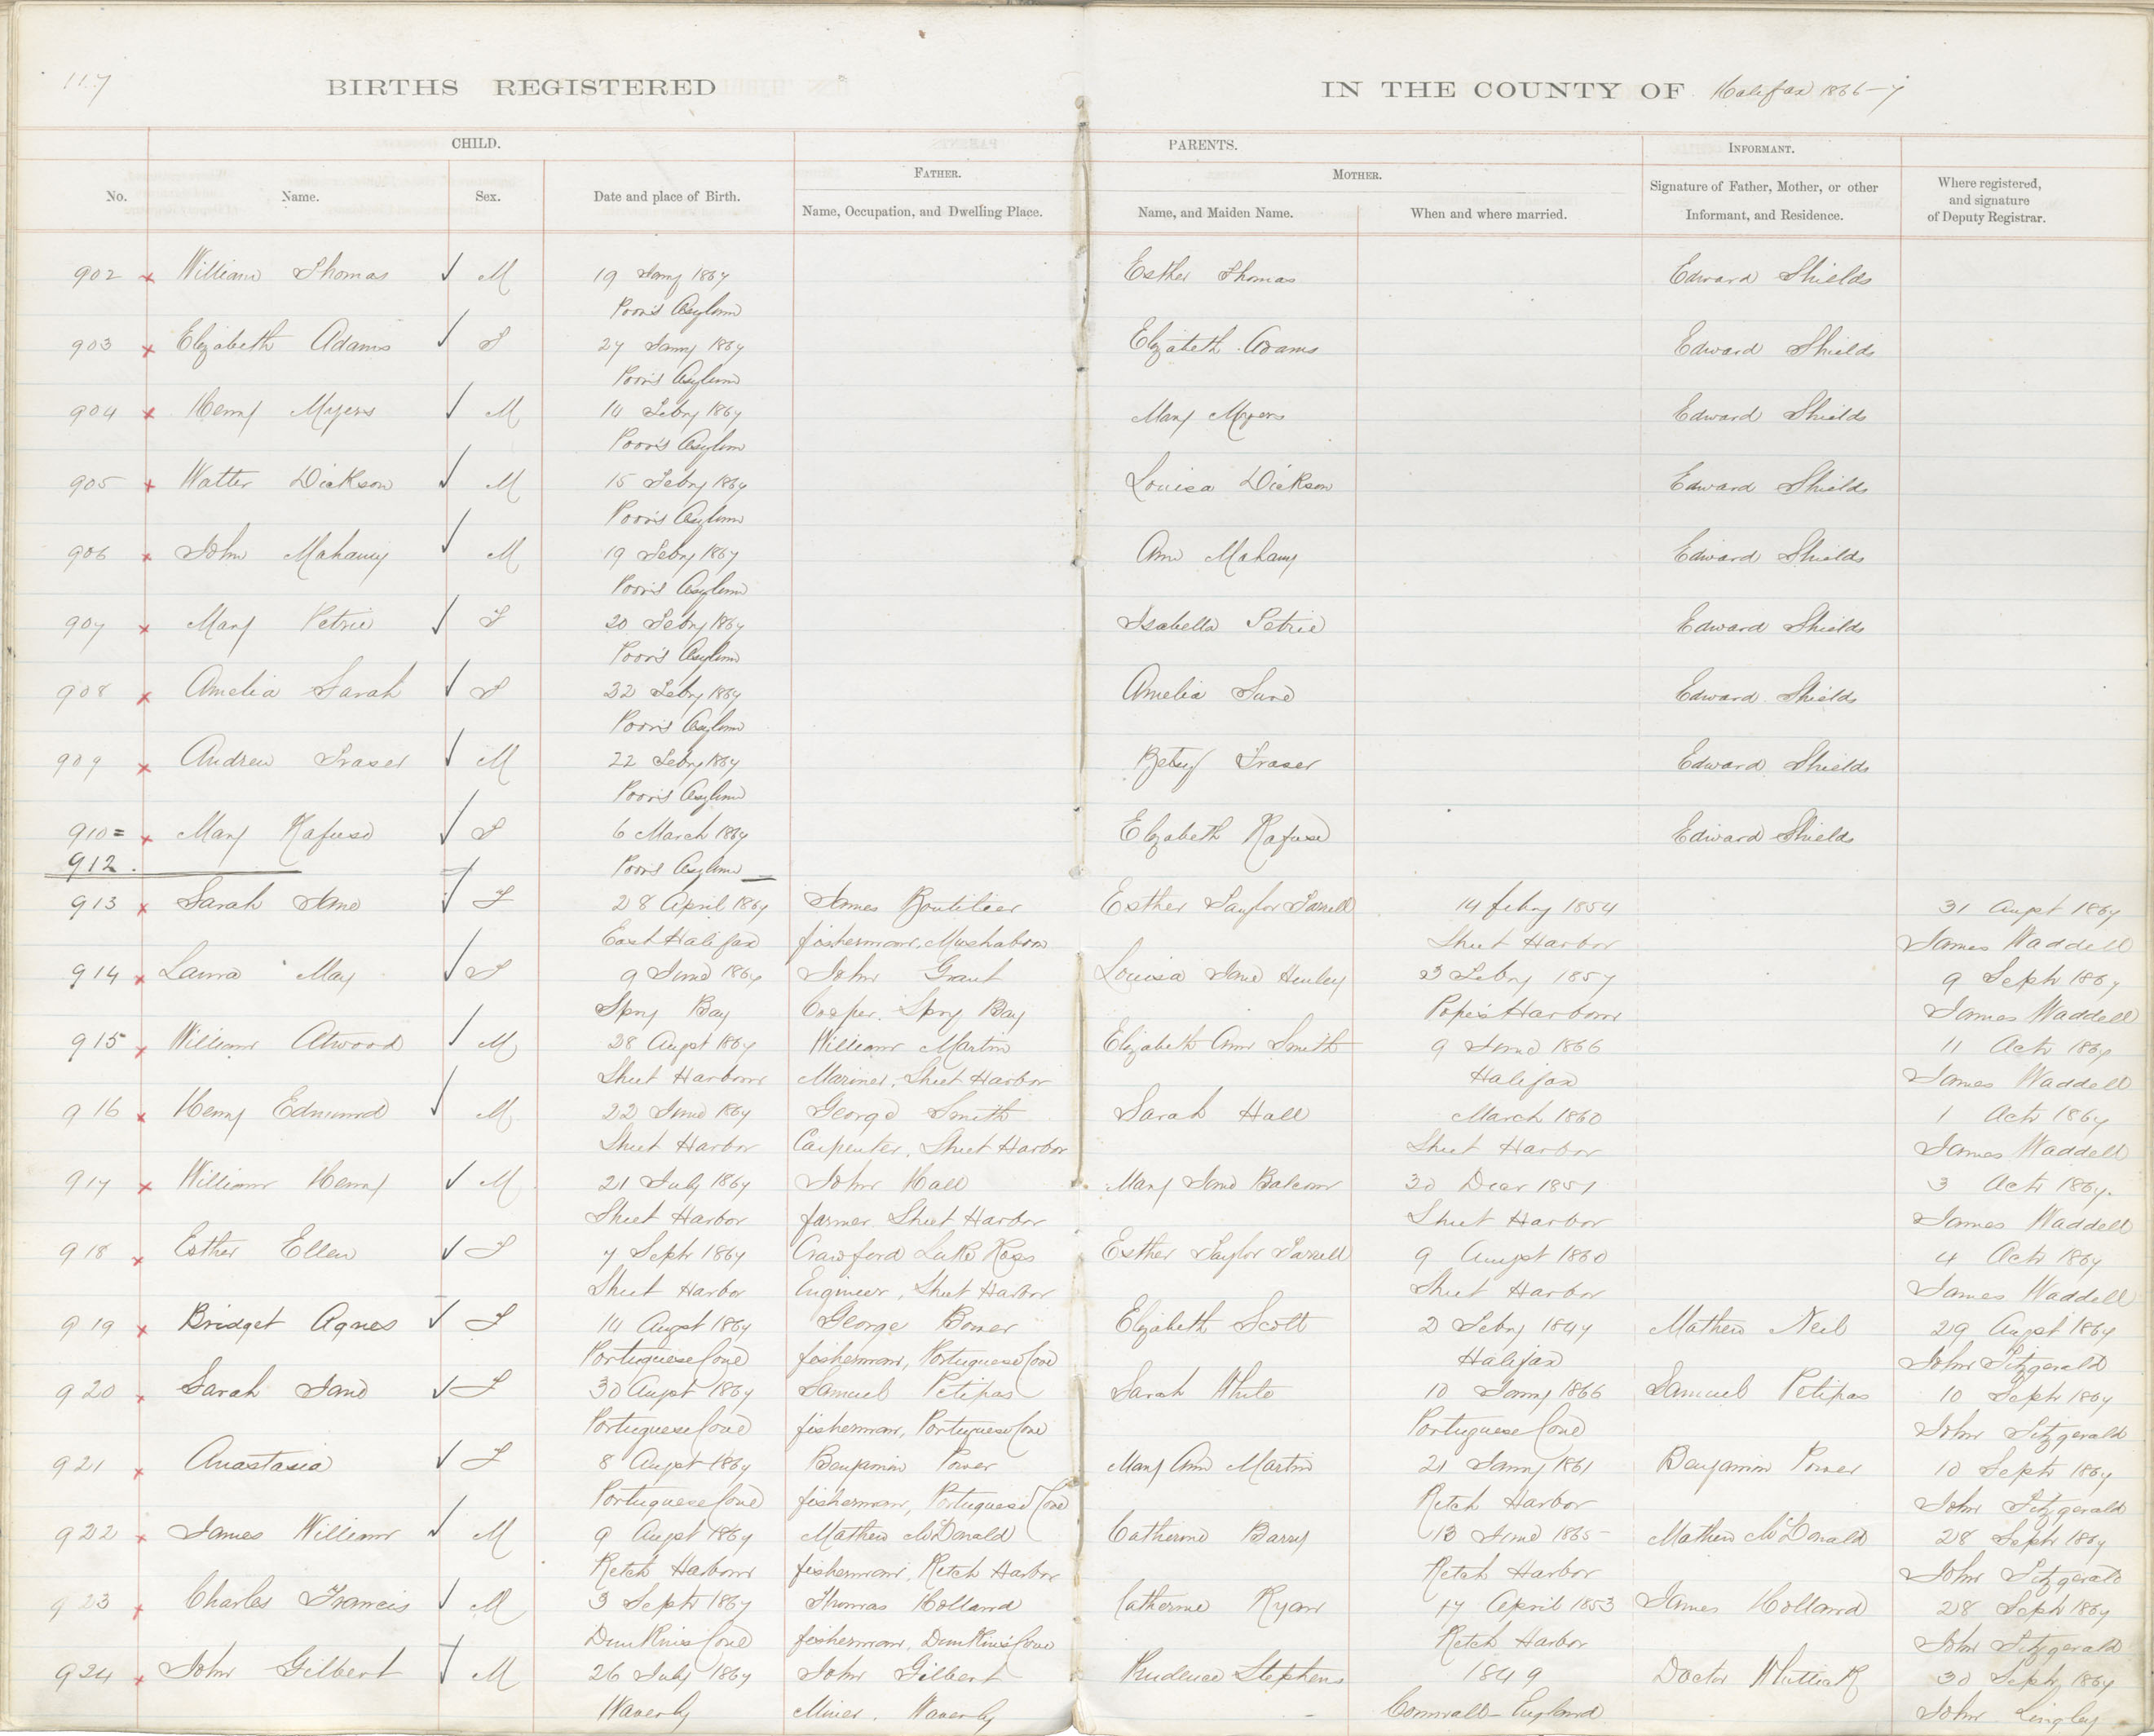 117
BIRTHS REGISTERED IN THE COUNTY OF Halifax 1866-7
CHILD. PARENTS. INFORMANT.
FATHER. MOTHER.
No. Name. Sex. Date and place of Birth. Name, Occupation, and Dwelling Place. Name, and Maiden Name. When and where married. Signature of Father, Mother, or other Informant, and Residence. Where registered, and signature of Deputy Registrar.
902 x William Thomas ✓ M 19 Jany 1867 Esther Thomas Edward Shields
Poor's Asylum
903 x Elizabeth Adams ✓ F 27 Jany 1867 Elizabeth Adams Edward Shields
Poor's Asylum
904 x Henry Myers ✓ M 14 Feby 1867 Mary Myers Edward Shields
Poor's Asylum
905 x Walter Dickson ✓ M 15 Feby 1867 Louisa Dickson Edward Shields
Poor's Asylum
906 x John Mahany ✓ M 19 Feby 1867 Ann Mahany Edward Shields
Poor's Asylum
907 x Mary Petrie ✓ F 20 Feby 1867 Isabella Petrie Edward Shields
Poor's Asylum
908 x Amelia Sarah ✓ F 22 Feby 1867 Amelia Edward Shields
Poor's Asylum
909 x Andrew Fraser ✓ M 22 Feby 1867 Betsy Fraser Edward Shields
Poor's Asylum
910= x Mary Rafuse ✓ F 6 March 1867 Elizabeth Rafuse Edward Shields
912. Poor's Asylum
913 x Sarah Jane ✓ F 28 April 1867 James Boutilier Esther Taylor Farrell 14 feby 1854 31 Augst 1867
East Halifax fisherman, Mushaboon Sheet Harbor James Waddell
914 x Laura May ✓ F 9 June 1867 John Grant Louisa Jane Henley 3 Feby 1857 9 Septr 1867
Spry Bay Cooper, Spry Bay Pope's Harbour James Waddell
915 x William Atwood ✓ M 28 Augst 1867 William Martin Elizabeth Ann Smith 9 June 1866 11 Octr 1867
Sheet Harbour Mariner, Sheet Harbor Halifax James Waddell
916 x Henry Edmund ✓ M 22 June 1867 George Smith Sarah Hall March 1860 1 Octr 1867
Sheet Harbor Carpenter, Sheet Harbor Sheet Harbor James Waddell
917 x William Henry ✓ M 21 July 1867 John Hall Mary Jane Balcom 30 Decr 1857 3 Octr 1867.
Sheet Harbor farmer, Sheet Harbor Sheet Harbor James Waddell
918 x Esther Ellen ✓ F 7 Septr 1867 Crawford Luke Ross Esther Taylor Farrell 9 Augst 1860 4 Octr 1867
Sheet Harbor Engineer, Sheet Harbor Sheet Harbor James Waddell
919 x Bridget Agnes ✓ F 14 Augst 1867 George Bower Elizabeth Scott 2 Feby 1847 Mathew Neil 29 Augst 1867
Portuguese Cove fisherman, Portuguese Cove Halifax John Fitzgerald
920 x Sarah Jane ✓ F 30 Augst 1867 Samuel Petipas Sarah White 10 Jany 1866 Samuel Petipas 10 Septr 1867
Portuguese Cove fisherman, Portuguese Cove Portuguese Cove John Fitzgerald
921 x Anastasia ✓ F 8 Augst 1867 Benjamin Power Mary Ann Martin 21 Jany 1861 Benjamin Power 10 Septr 1867
Portuguese Cove fisherman, Portuguese Cove Ketch Harbor John Fitzgerald
922 x James William ✓ M 9 Augst 1867 Mathew McDonald Catherine Barry 13 June 1865 Mathew McDonald 28 Septr 1867
Ketch Harbour fisherman, Ketch Harbor Ketch Harbor John Fitzgerald
923 x Charles Francis ✓ M 3 Septr 1867 Thomas Holland Catherine Ryan 17 April 1853 James Holland 28 Septr 1867
Dunkins Cove fisherman, Dunkins Cove Ketch Harbor John Fitzgerald
924 x John Gilbert ✓ M 26 July 1867 John Gilbert Prudence Stephens 1849 Doctor 30 Septr 1867
Waverly Miner, Waverly Cornwall - England John Lingley